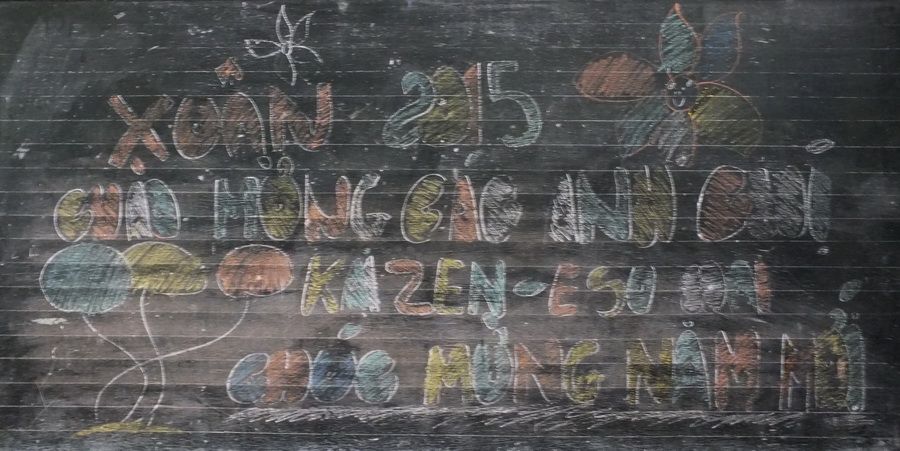 XUÂN 2015
CHÀO MỪNG CÁC ANH CHỊ
KAZEN-ESU
CHÚC MỪNG NĂM MỚI